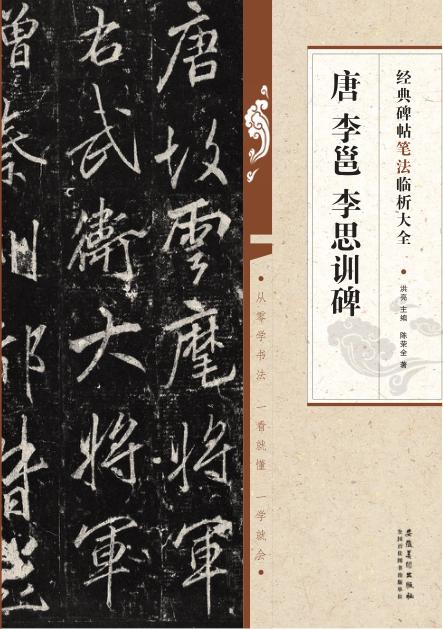 经典碑帖笔法临析大全
唐 李邕 李思训碑
洪亮 主编 陈荣全 著
从零学书法 一看就懂 一学就会
安徽美术出版社
全国百佳图书出版单位
唐故雲麾將軍
右武衛大將軍
贈秦州都督